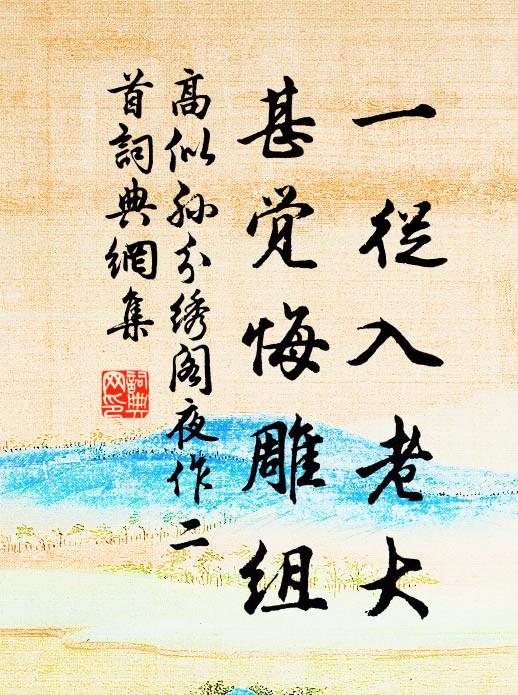 一從入老大
甚觉悔雕组
高似孙分绣阁夜作二
首詞典網集
詞典网印